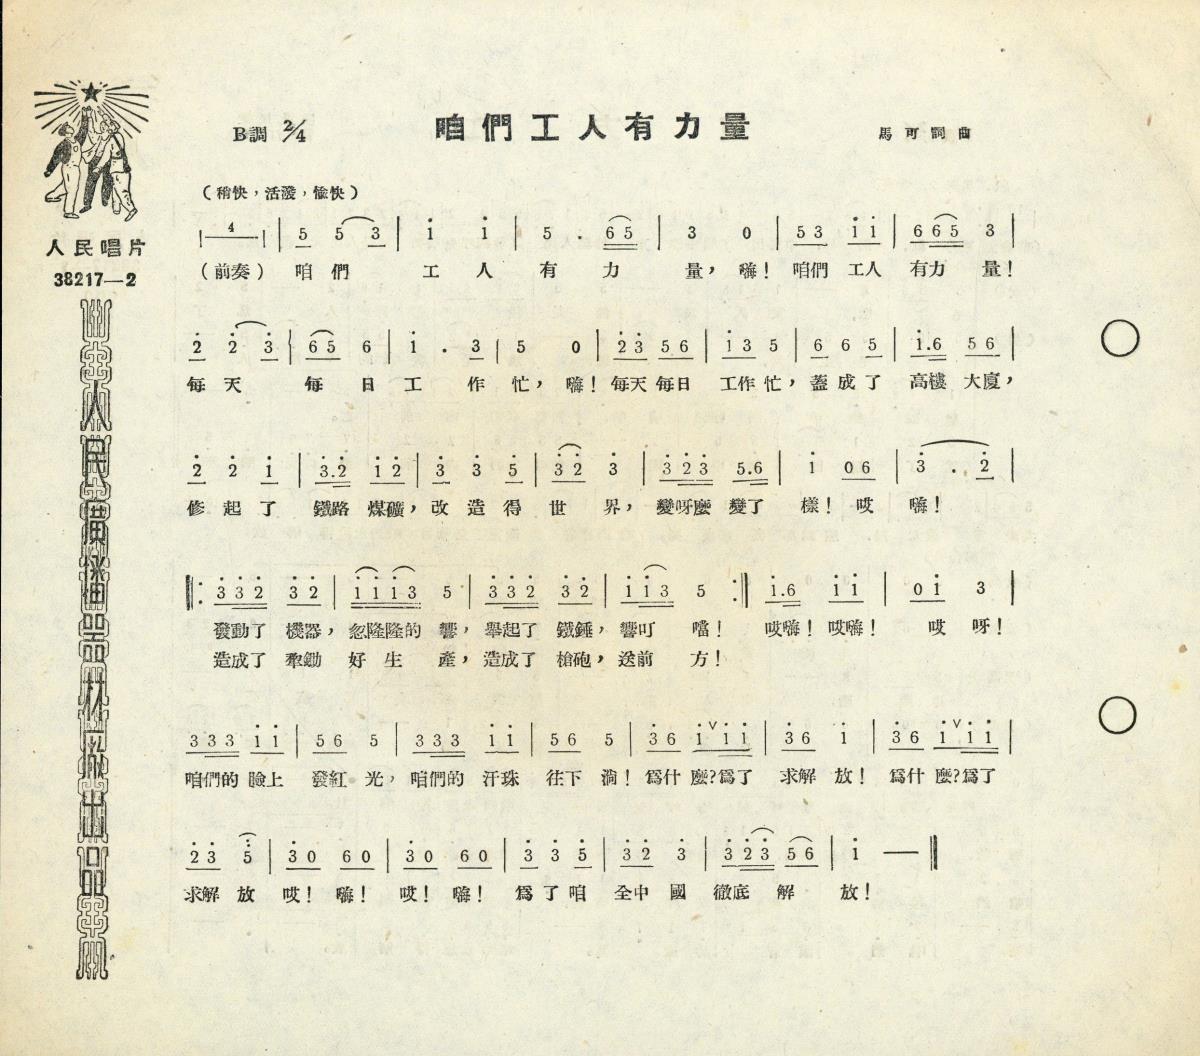 咱們工人有力量
B調 2/4
馬可詞曲
(稍快，活潑，愉快)
人民唱片
38217—2
4 | 5 5 3 | i i | 5 . 65 | 3 0 | 53 ii | 665 3 |
(前奏) 咱們 工人有力量，嗨！咱們工人有力量！
2 2 3 | 65 6 | i . 3 | 5 0 | 23 56 | i35 | 665 | i.6 56 |
每天每日工作忙，嗨！每天每日工作忙，蓋成了高樓大廈，
2 2 i | 3.2 i2 | 3 3 5 | 32 3 | 323 5.6 | i 06 | 3 . 2 |
修起了鐵路煤礦，改造得世界，變呀麼變了樣！哎嗨！
332 32 | iii3 5 | 332 32 | ii3 5 :| i.6 ii | 0i 3 |
發動了機器，忽隆隆的響，舉起了鐵錘，響叮噹！哎嗨！哎嗨！哎呀！
造成了犁鋤好生產，造成了槍砲，送前方！
333 ii | 56 5 | 333 ii | 56 5 | 36 i∨ii | 36 i | 36 i∨ii |
咱們的臉上發紅光，咱們的汗珠往下淌！爲什麼？爲了求解放！爲什麼？爲了
23 5 | 30 60 | 30 60 | 3 3 5 | 32 3 | 323 56 | i — ||
求解放哎！嗨！哎！嗨！爲了咱全中國徹底解放！
人民廣播器材廠出品